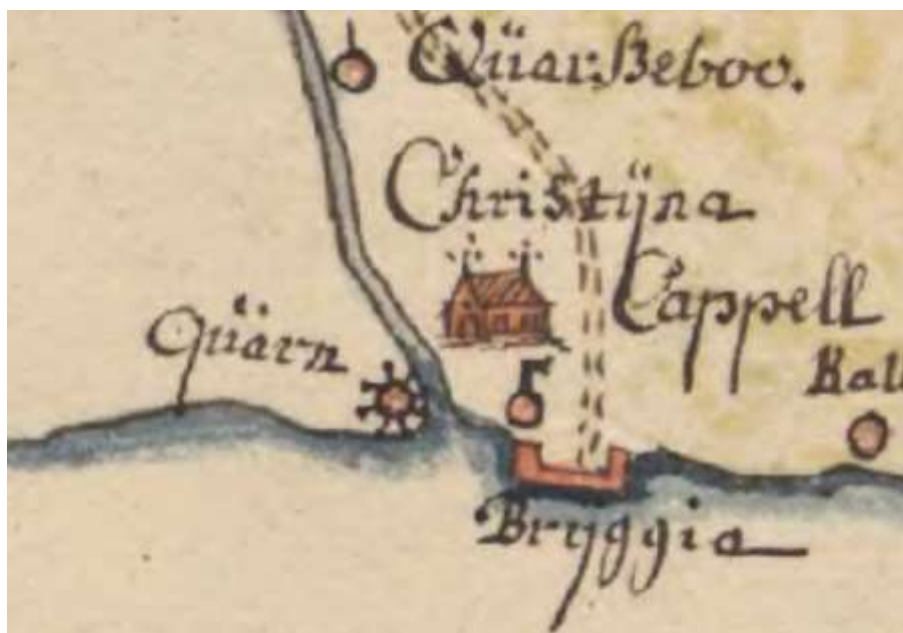 Qüarßeboo.
Christÿna
Cappell
Qüärn
Kal
Brÿggia